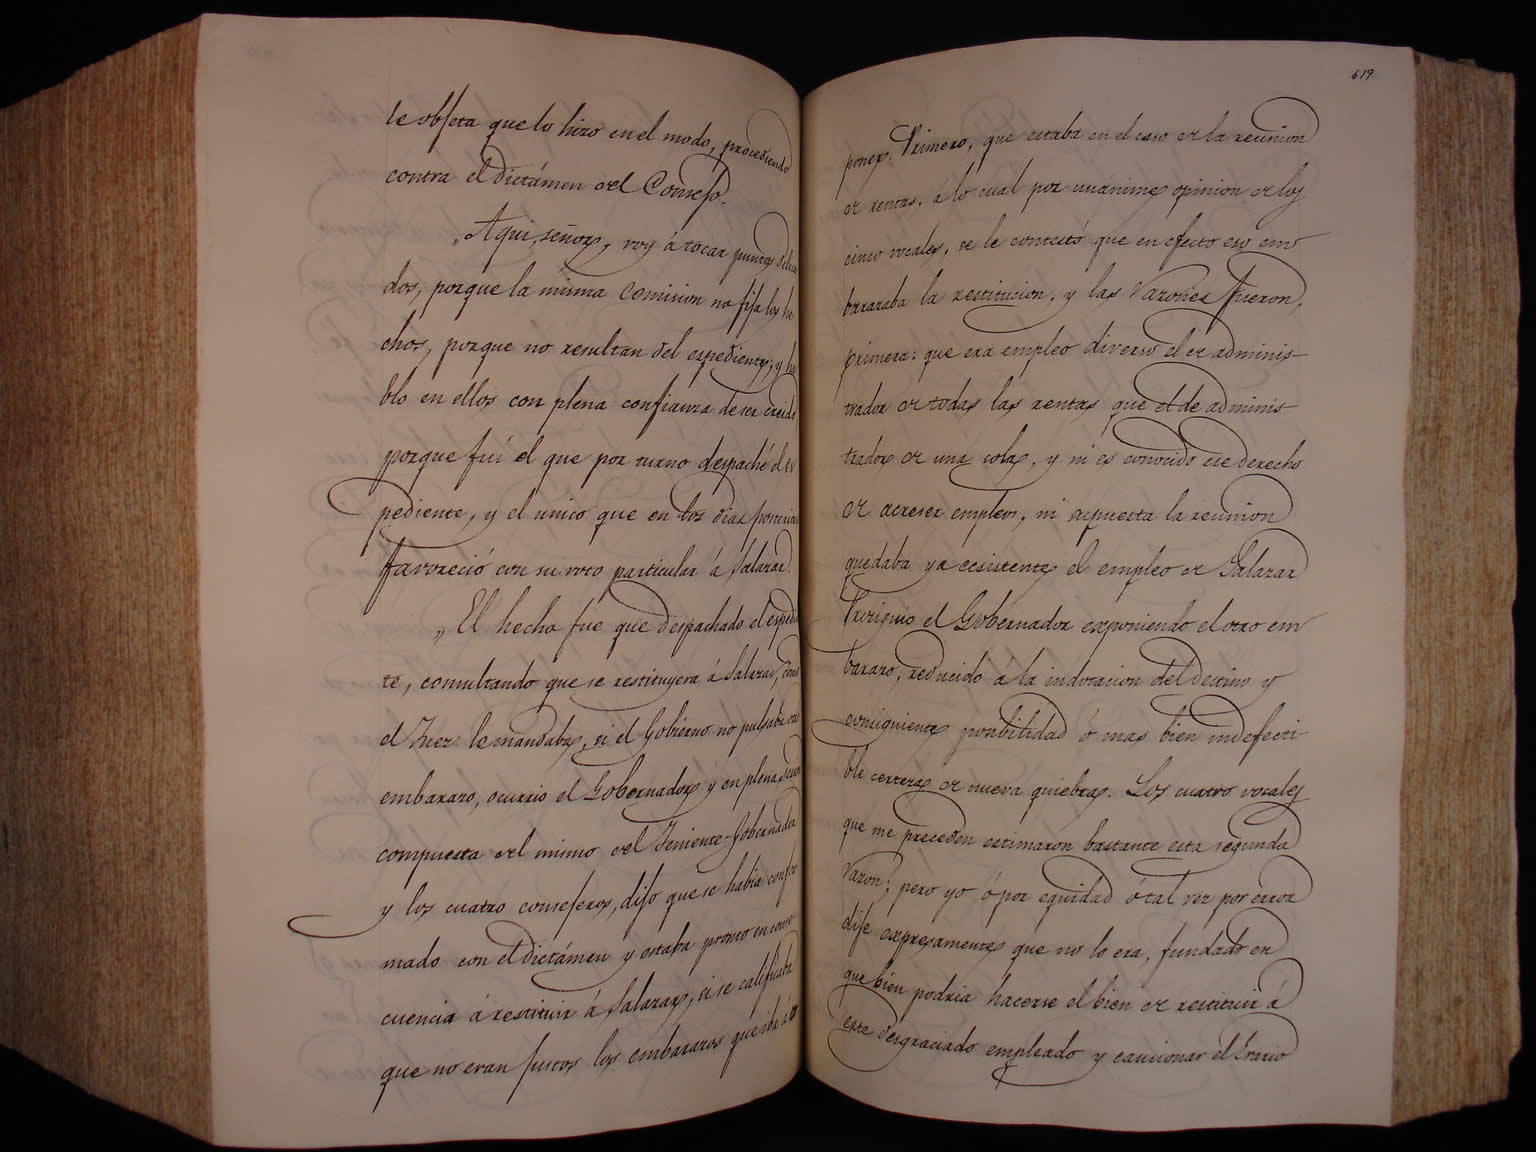 le objeta que lo hizo en el modo, procediendo
contra el dictámen del Consejo.
„Aqui, señor, voy á tocar puntos delica
dos, porque la misma comision no fija los he
chos, porque no resultan del expediente, y ha
blo en ellos con plena confianza de ser creido
porque fuí el que por turno despaché el es
pediente, y el unico que en los dias posteriores
favoreció con su voto particular á Salazar.
„El hecho fue que despachado el espedien
te, consultando que se restituyera á Salazar, como
el Juez lo mandaba, si el Gobierno no pulsaba otro
embarazo, ocurrio el Gobernador y en plena sesion
compuesta del mismo del Teniente-Gobernador
y los cuatro consejeros, dijo que se habia confor
mado con el dictámen y estaba pronto en conse
cuencia á restituir á Salazar, si se calificaba
que no eran justos los embarazos que iba á ex
619
poner. Primero, que estaba en el caso de la reunion
de rentas, á lo cual por unánime opinion de los
cinco vocales, se le contestó que en efecto eso em
barazaba la restitucion, y las razones fueron,
primera: que era empleo diverso el de adminis-
trador de todas las rentas que el de adminis-
trador de una sola, y ni es conocido ese derecho
de acreser empleos, ni supuesta la reunion
quedaba ya ecsistente el empleo de Salazar
Prosiguio el Gobernador exponiendo el otro em
barazo, reducido á la indotacion del destino y
consiguiente posibilidad ó mas bien indefecti-
ble certeza de nueva quiebra. Los cuatro vocales
que me preceden estimaron bastante esta segunda
razon; pero yo ó por equidad ó tal vez por error
dije expresamente que no lo era, fundado en
que bien podria hacerse el bien de restituir á
este desgraciado empleado y caucionar el Erario